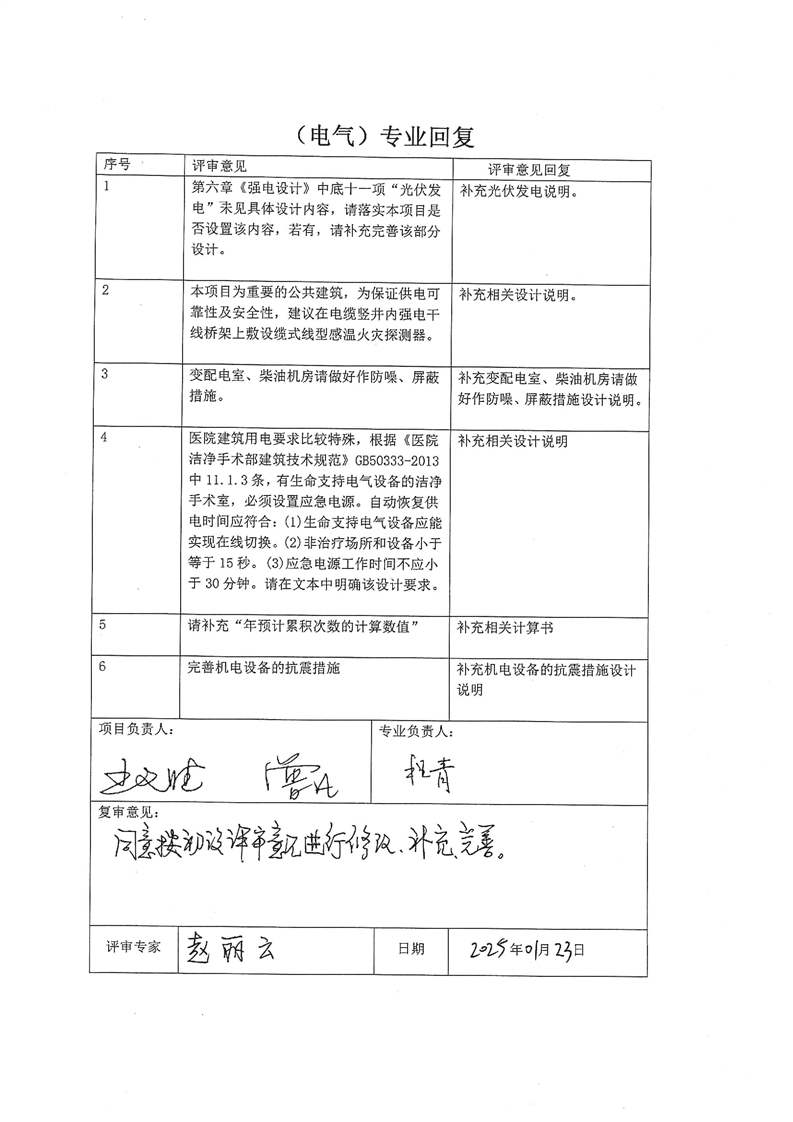 （电气）专业回复
序号 评审意见 评审意见回复
1 第六章《强电设计》中底十一项“光伏发 补充光伏发电说明。
电”未见具体设计内容，请落实本项目是
否设置该内容，若有，请补充完善该部分
设计。
2 本项目为重要的公共建筑，为保证供电可 补充相关设计说明。
靠性及安全性，建议在电缆竖井内强电干
线桥架上敷设缆式线型感温火灾探测器。
3 变配电室、柴油机房请做好作防噪、屏蔽 补充变配电室、柴油机房请做
措施。 好作防噪、屏蔽措施设计说明。
4 医院建筑用电要求比较特殊，根据《医院 补充相关设计说明
洁净手术部建筑技术规范》GB50333-2013
中 11.1.3条，有生命支持电气设备的洁净
手术室，必须设置应急电源。自动恢复供
电时间应符合：(1)生命支持电气设备应能
实现在线切换。(2)非治疗场所和设备小于
等于 15 秒。(3)应急电源工作时间不应小
于 30 分钟。请在文本中明确该设计要求。
5 请补充“年预计累积次数的计算数值” 补充相关计算书
6 完善机电设备的抗震措施 补充机电设备的抗震措施设计
说明
项目负责人： 专业负责人：
程青
复审意见：
同意按初设评审意见进行修改、补充、完善。
评审专家 赵丽云 日期 2025年01月23日